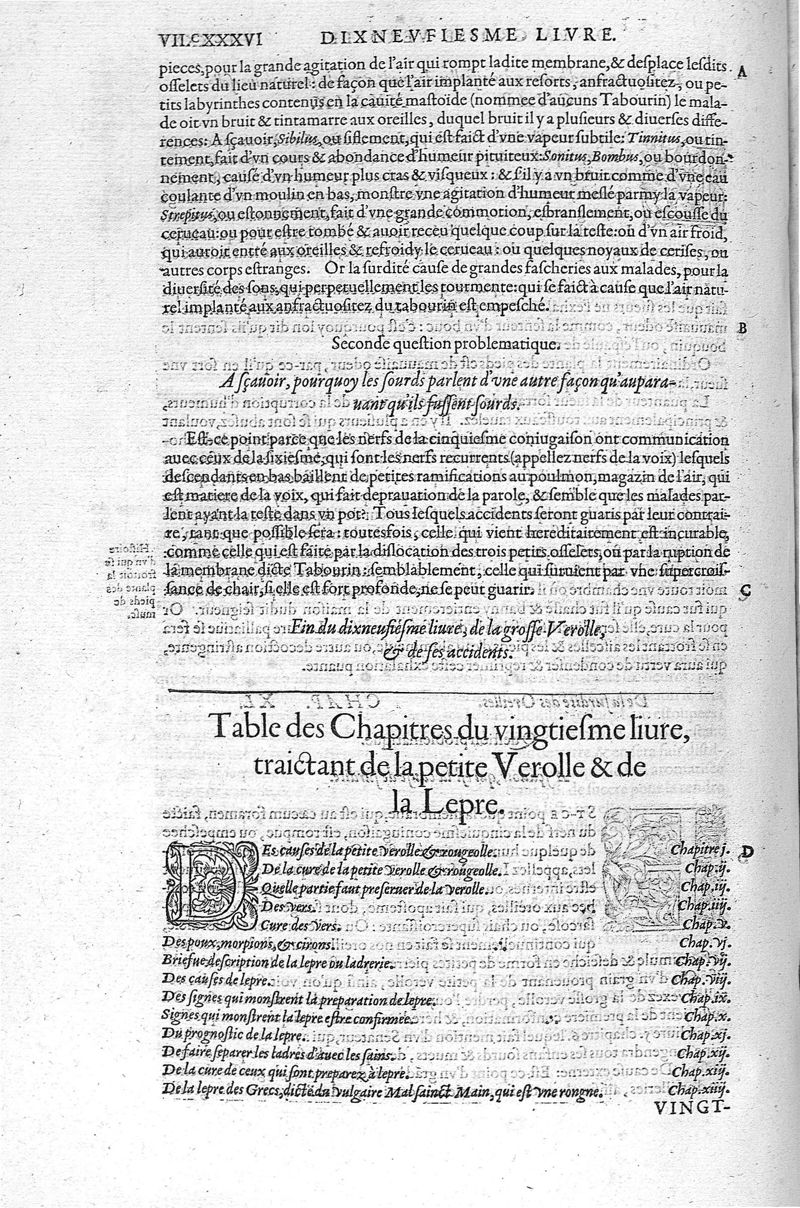 VII.CXXXVI DIXNEVFIESME LIVRE.
pieces, pour la grande agitation de l'air qui rompt ladite membrane, & desplace lesdits
osselets du lieu naturel: de façon que l'air implanté aux resorts, anfractuositez, ou pe-
tits labyrinthes contenus en la cauité mastoïde (nommee d'aucuns Tabourin) le mala-
de oit vn bruit & tintamarre aux oreilles, duquel bruit il y a plusieurs & diuerses diffe-
rences: A sçauoir, Sibilus, ou siflement, qui est faict d'vne vapeur subtile: Tinnitus, ou tin-
tement, fait d'vn cours & abondance d'humeur pituiteux: Sonitus, Bombus, ou bourdon-
nement, causé d'vn humeur plus cras & visqueux: & s'il y a vn bruit comme d'vne eau
coulante d'vn moulin en bas, monstre vne agitation d'humeur meslé parmy la vapeur:
Strepitus, ou estonnement, fait d'vne grande commotion, esbranslement, ou escousse du
cerueau: ou pour estre tombé & auoir receu quelque coup sur la teste: ou d'vn air froid,
qui auroit entré aux oreilles & refroidy le cerueau: ou quelques noyaux de cerises, ou
autres corps estranges. Or la surdité cause de grandes fascheries aux malades, pour la
diuersité des sons, qui perpetuellement les tourmente: qui se faict à cause que l'air natu-
rel implanté aux anfractuositez du tabourin est empesché.
Seconde question problematique.
A sçauoir, pourquoy les sourds parlent d'vne autre façon qu'aupara-
uant qu'ils fussent sourds.
Est-ce point parce que les nerfs de la cinquiesme coniugaison ont communication
auec ceux de la sixiesme, qui sont les nerfs recurrents (appellez nerfs de la voix) lesquels
descendants en bas baillent de petites ramifications au poulmon, magazin de l'air, qui
est matiere de la voix, qui fait deprauation de la parole, & semble que les malades par-
lent ayant la teste dans vn pot? Tous lesquels accidents seront guaris par leur contrai-
re, tant que possible sera: toutesfois, celle qui vient hereditairement est incurable,
comme celle qui est faite par la dislocation des trois petits osselets, ou par la ruption de
la membrane dicte Tabourin: semblablement, celle qui suruient par vne supercrois-
sance de chair, si elle est fort profonde, ne se peut guarir.
Fin du dixneufiésme liure, de la grosse Verolle,
& de ses accidents.
A
B
C
Table des Chapitres du vingtiesme liure,
traictant de la petite Verolle & de
la Lepre.
DEs causes de la petite verolle & rougeolle. Chapitre j. D
De la cure de la petite verolle & rougeolle. Chap. ij.
Quelle partie faut preseruer de la verolle. Chap. iij.
Des vers. Chap. iiij.
Cure des vers. Chap. v.
Des poux, morpions, & cirons. Chap. vj.
Briefue description de la lepre ou ladrerie. Chap. vij.
Des causes de lepre. Chap. viij.
Des signes qui monstrent la preparation de lepre. Chap. ix.
Signes qui monstrent la lepre estre confirmee. Chap. x.
Du prognostic de la lepre. Chap. xj.
De faire separer les ladres d'auec les sains. Chap. xij.
De la cure de ceux qui sont preparez à lepre. Chap. xiij.
De la lepre des Grecs, dicte du vulgaire Mal sainct Main, qui est vne rongne. Chap. xiiij.
VINGT-